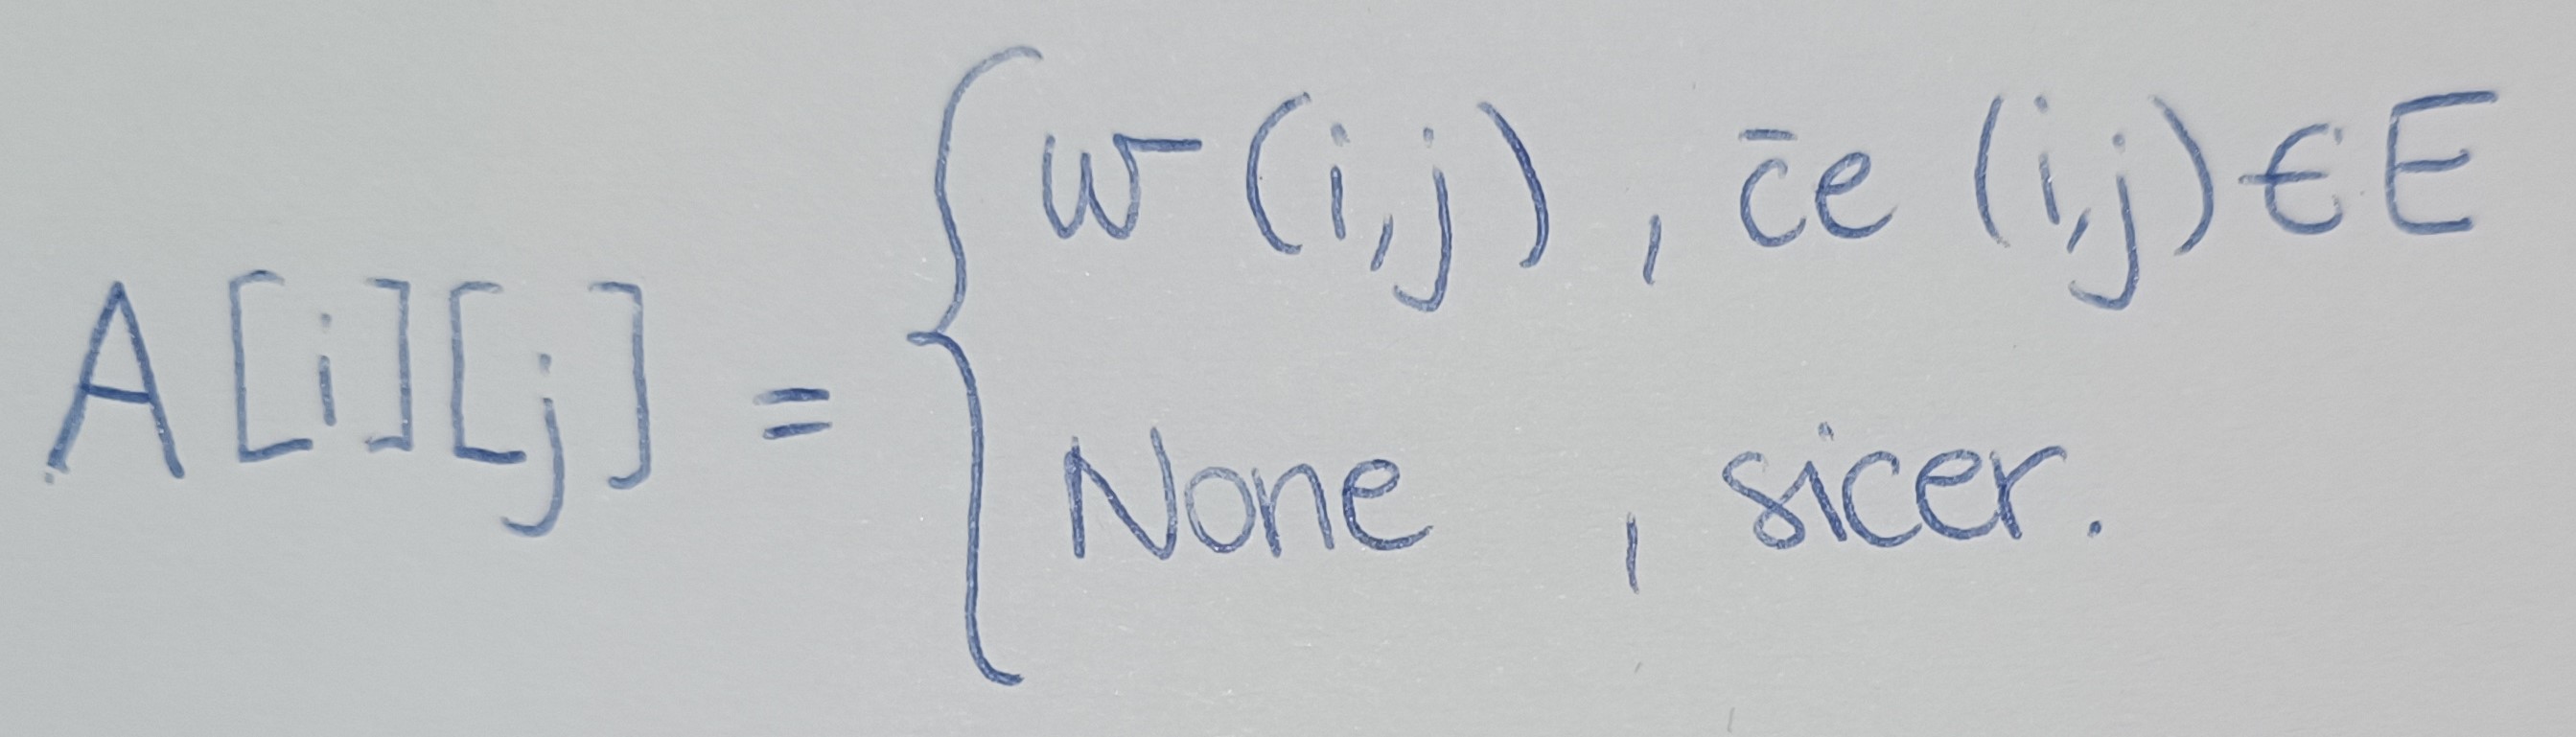 A[i][j] = { w(i,j) , če (i,j) ∈ E
None , sicer.